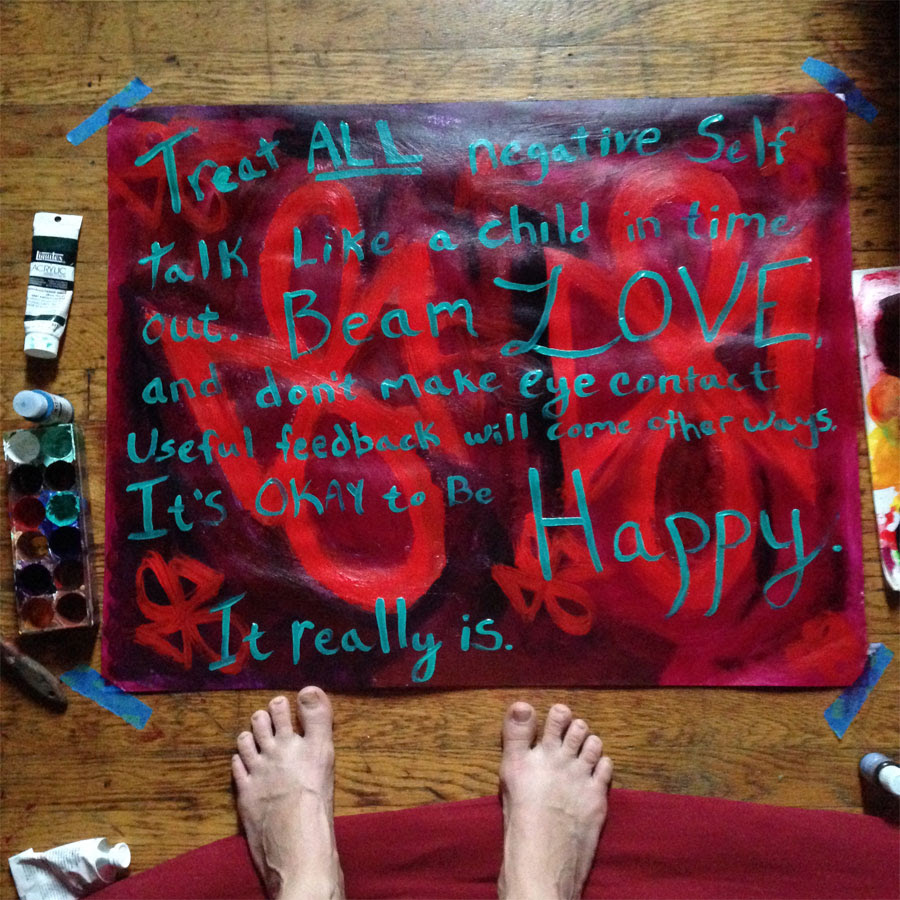 Treat ALL negative Self
talk Like a child in time
out. Beam LOVE,
and don't make eye contact.
Useful feedback will come other ways.
It's OKAY to Be Happy.
It really is.
Liquitex
ACRYLIC